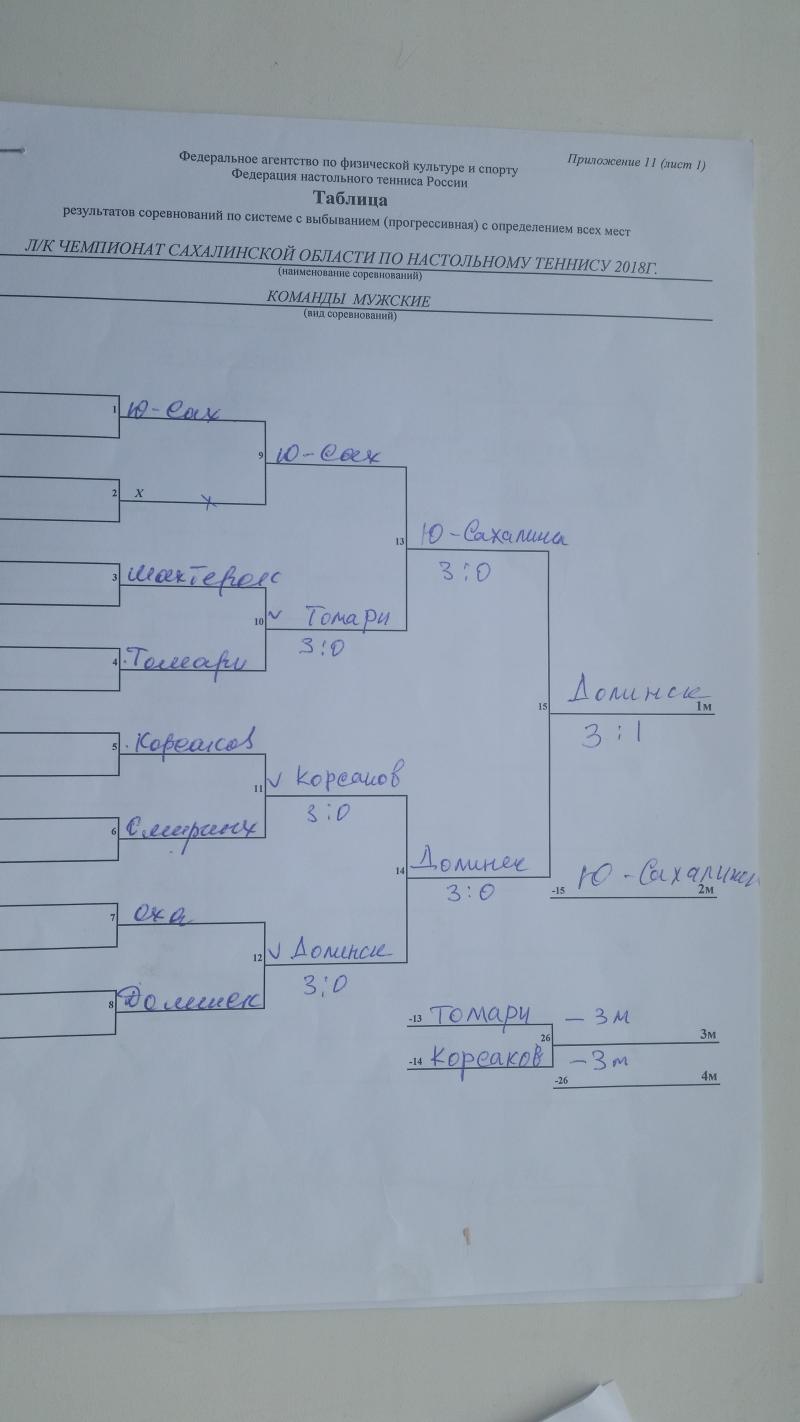 Приложение 11 (лист 1)
Федеральное агентство по физической культуре и спорту
Федерация настольного тенниса России
Таблица
результатов соревнований по системе с выбыванием (прогрессивная) с определением всех мест
Л/К ЧЕМПИОНАТ САХАЛИНСКОЙ ОБЛАСТИ ПО НАСТОЛЬНОМУ ТЕННИСУ 2018Г.
(наименование соревнований)
КОМАНДЫ МУЖСКИЕ
(вид соревнований)
1 Ю-Сах
9 Ю-Сах
2 X X
13 Ю-Сахалинс
3:0
3 Шахтерск
10 Томари
3:0
4 Томари
15 Долинск 1м
3:1
5 Корсаков
11 Корсаков
3:0
6 Смирных
14 Долинск
3:0
-15 Ю-Сахалинск 2м
7 Оха
12 Долинск
3:0
8 Долинск
-13 Томари – 3м
26 3м
-14 Корсаков – 3м
-26 4м